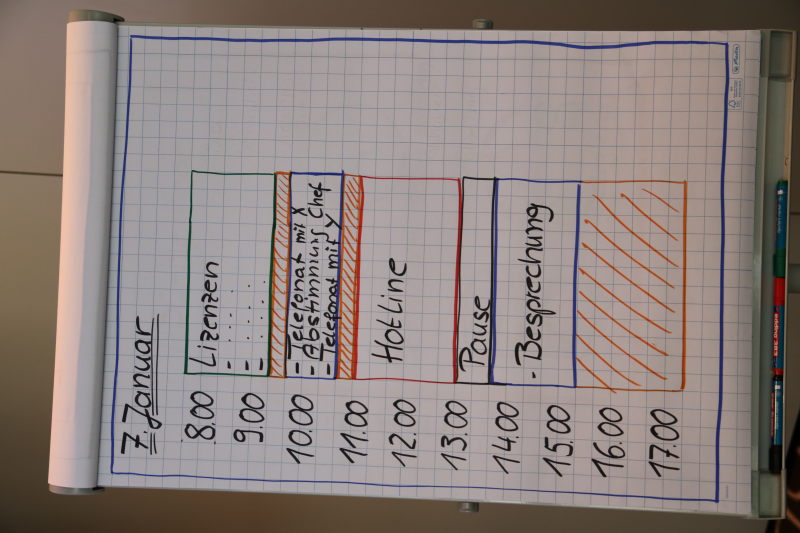 7. Januar
8.00
Lizenzen
9.00
-.....
-.....
10.00
- Telefonat mit X
- Abstimmung Chef
- Telefonat mit y
11.00
12.00
Hotline
13.00
Pause
14.00
- Besprechung
15.00
16.00
17.00